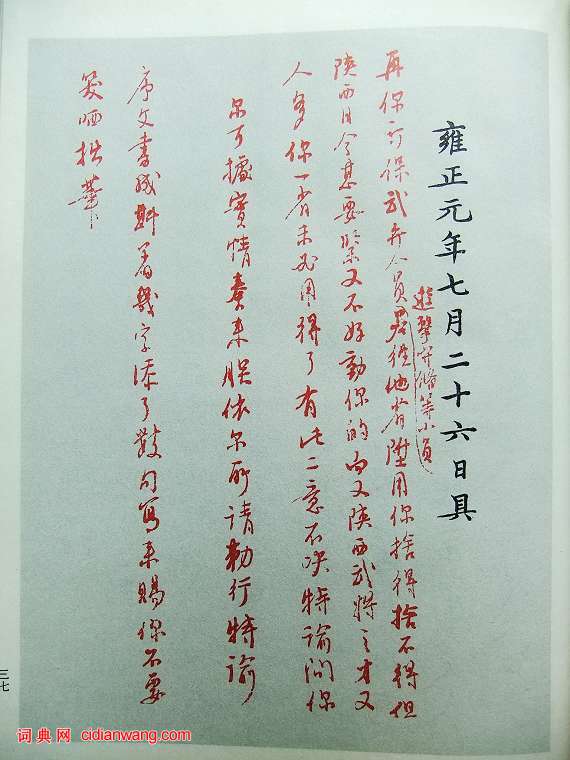 雍正元年七月二十六日具
遊擊守備等小員
再你所保武弁人員若從他省陞用你捨得捨不得但
陝西目今甚要緊又不好動你的而又陝西武將之才又
人多你一省未必用得了有此二意不決特諭問你
尔可據實情奏来朕依尔所請勅行特諭
序文書成斟着幾字添了數句寫来賜你不要
笑哂拙筆
三七
词典网 cidianwang.com